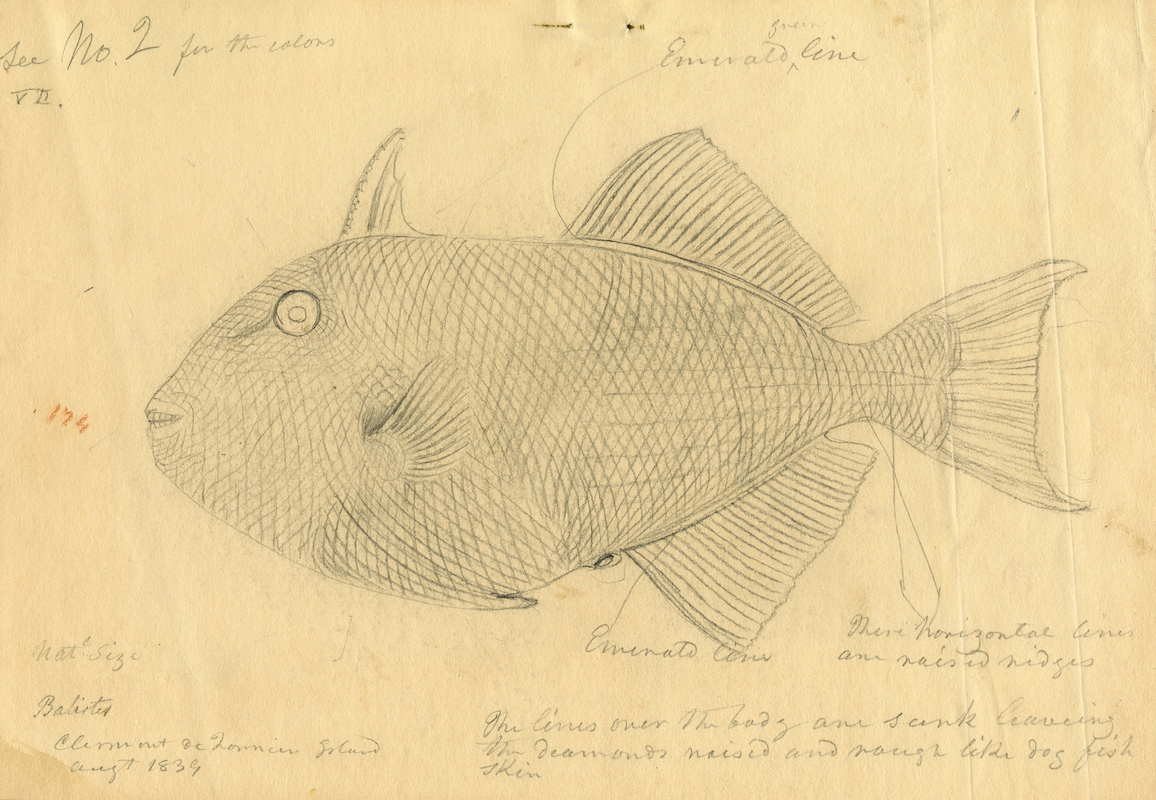 See No. 2 for the colors
VII.
green
Emerald, line
174
Emerald line
These horizontal lines
are raised ridges
Nat.l Size
Balistes
Clermont de Tonnere Island
augt 1839
The lines over the body are sunk leaveing
the deamonds raised and rough like dog fish
skin